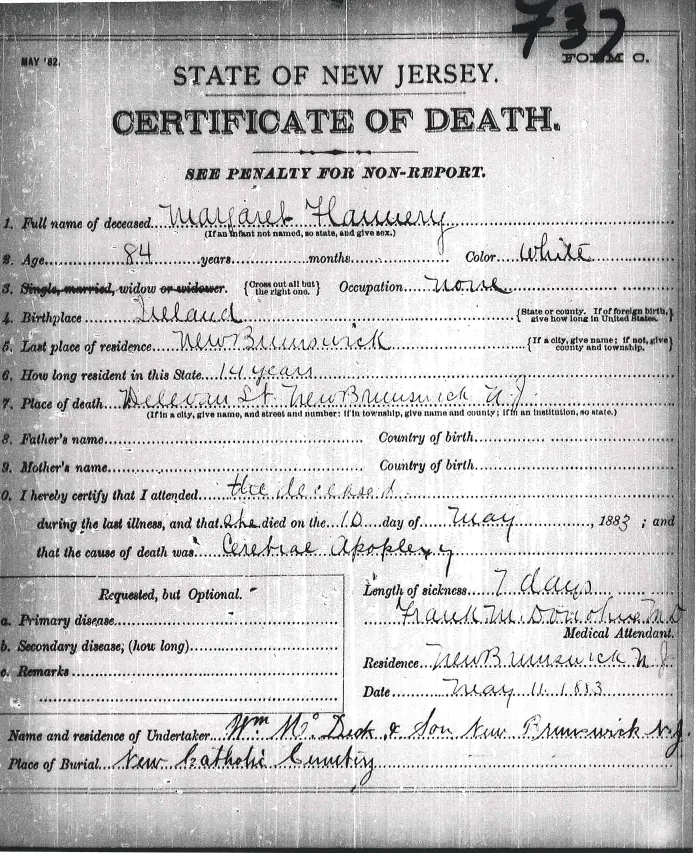 737
MAY '82.
FORM C.
STATE OF NEW JERSEY.
CERTIFICATE OF DEATH.
SEE PENALTY FOR NON-REPORT.
1. Full name of deceased Margaret Flannery
(If an infant not named, so state, and give sex.)
2. Age 84 years months Color White
3. Single, married, widow or widower. {Cross out all but the right one.} Occupation None
4. Birthplace Ireland {State or county. If of foreign birth, give how long in United States.
5. Last place of residence New Brunswick {If a city, give name; if not, give county and township.
6. How long resident in this State 14 years
7. Place of death Delevan St. New Brunswick N.J.
(If in a city, give name, and street and number: if in township, give name and county; if in an institution, so state.)
8. Father's name Country of birth
9. Mother's name Country of birth
0. I hereby certify that I attended the deceased
during the last illness, and that she died on the 10 day of May, 1883; and
that the cause of death was Cerebral Apoplexy
Requested, but Optional.
Length of sickness 7 days
a. Primary disease
Frank M. Donohue M D
Medical Attendant.
b. Secondary disease, (how long)
Residence New Brunswick N. J.
c. Remarks
Date May 11. 1883
Name and residence of Undertaker Wm Mc Dede & Son New Brunswick N.J.
Place of Burial New Catholic Cemetery